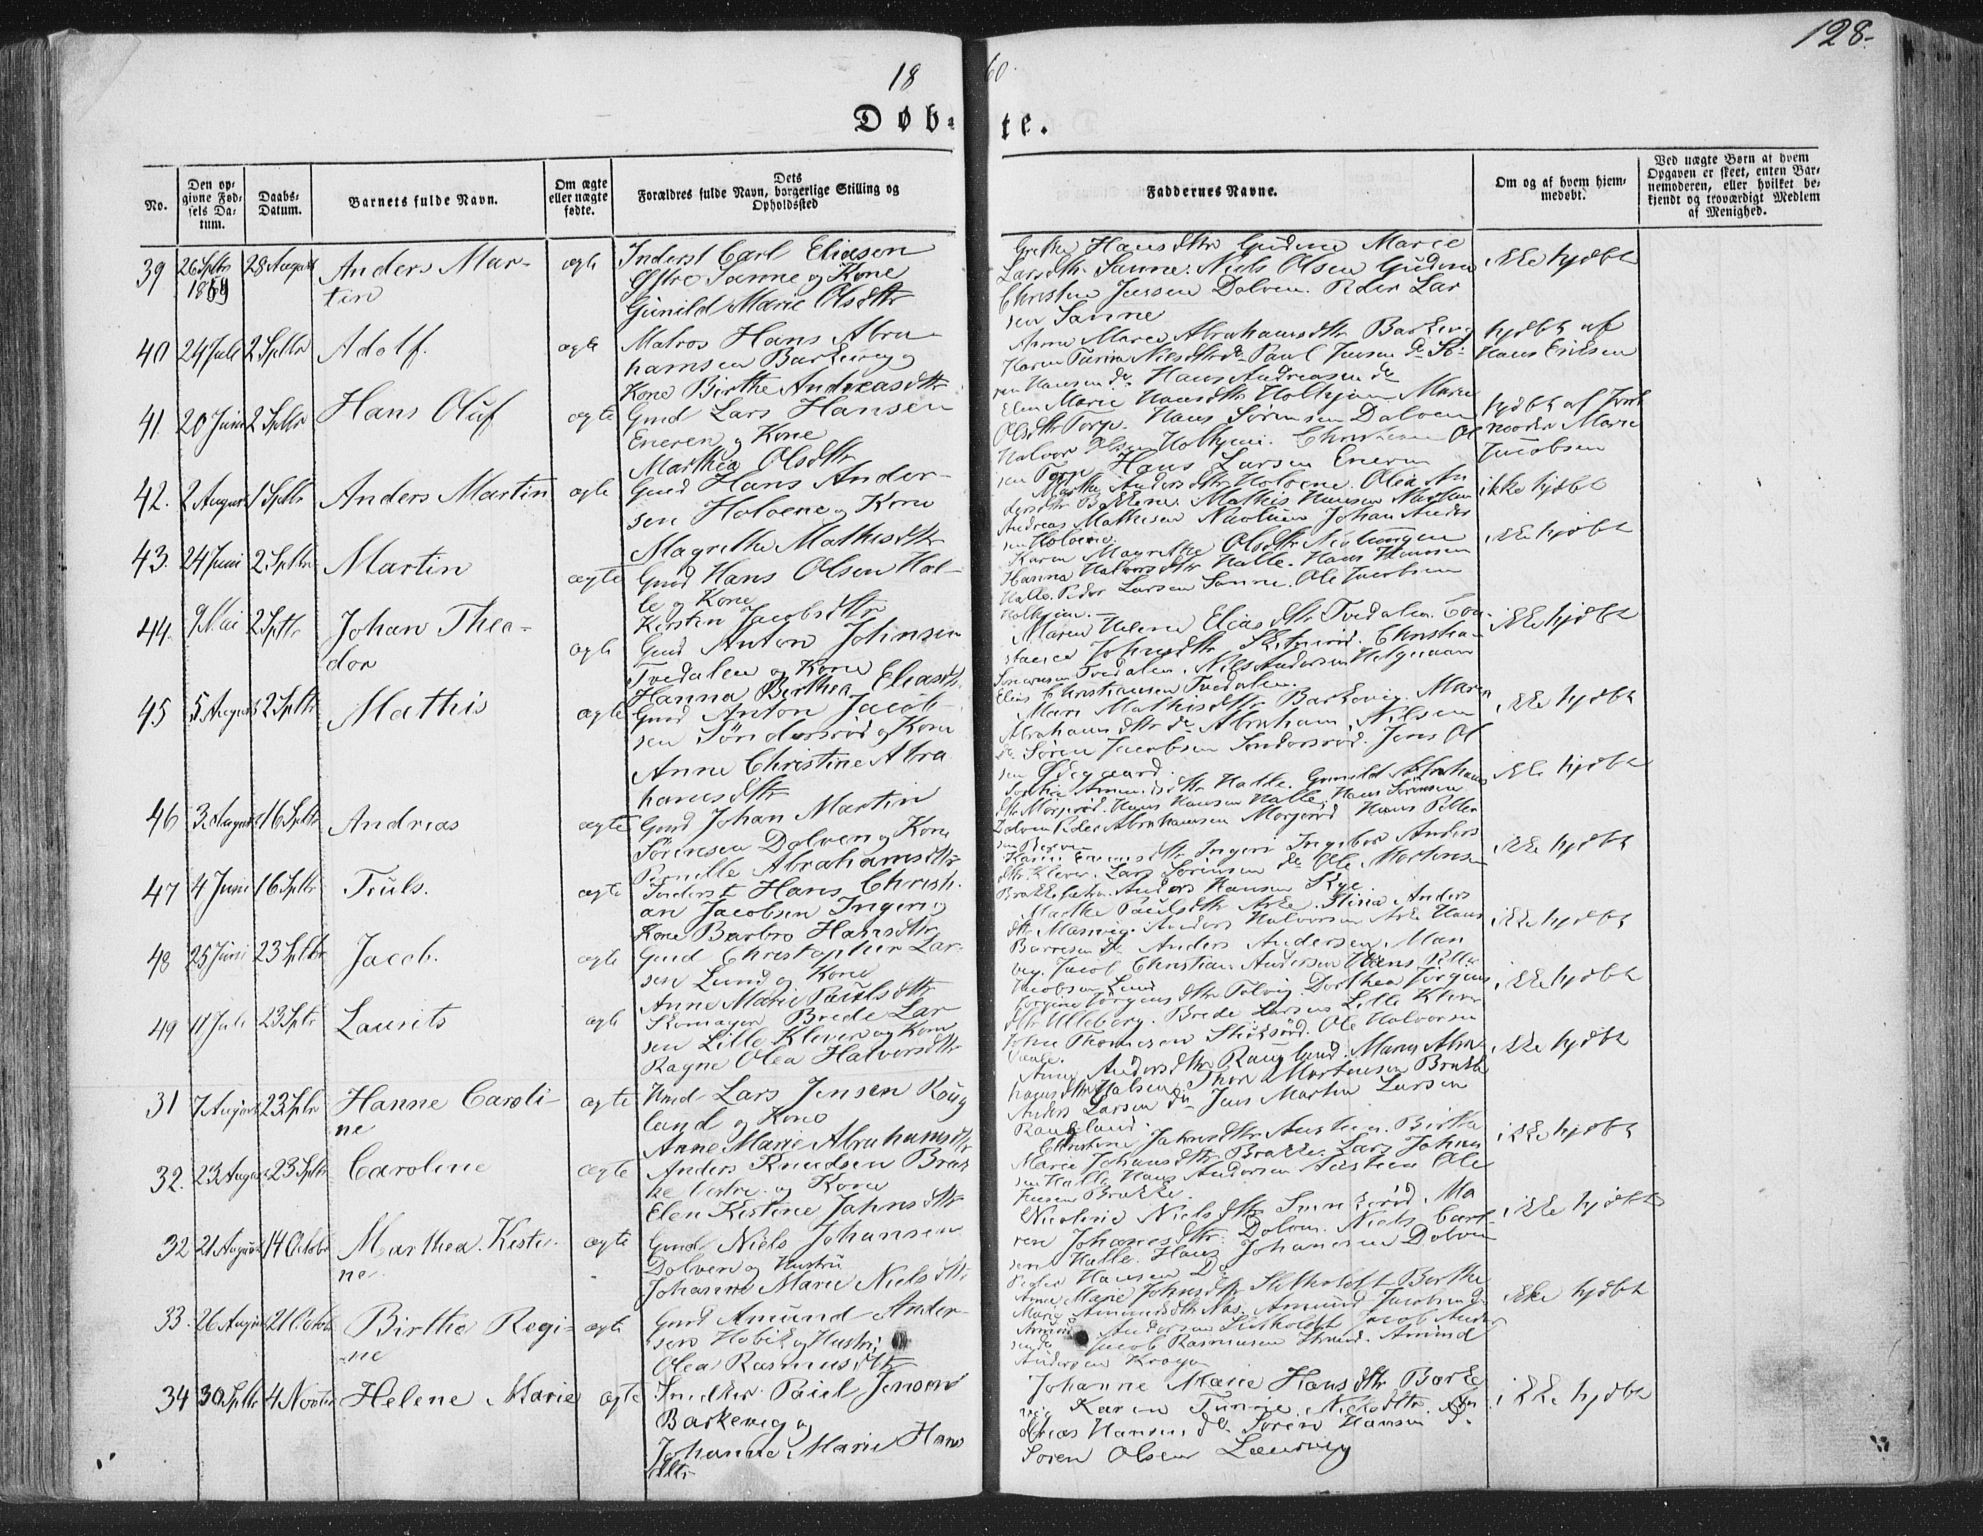 128.
18 60.
Døb- te.
No.
Den op-
givne Fød-
sels Da-
tum.
Daabs-
Datum.
Barnets fulde Navn.
Om ægte
eller nægte
fødte.
Dets
Forældres fulde Navn, borgerlige Stilling og
Opholdssted
Faddernes Navne.
Om og af hvem hjem-
medøbt.
Ved uægte Børn af hvem
Opgaven er skeet, enten Bar-
nemoderen, eller hvilket be-
kjendt og troværdigt Medlem
af Menighed.
39 26 Septbr 28 August Anders Mar- ægte Inderst Carl Eliasen
1859 tin Østre Sanne og Kone
Gunild Marie Olsdttr
Grethe Hansdttr Gudem Marie
Larsdttr Sanne. Niels Olsen Gudem
Christen Jensen Dolven. Peder Lar
sen Sanne
ikke hjdbt
40 24 Juli 2 Septbr Adolf. ægte Matros Hans Abra-
hamsen Barkevig og
Kone Birthe Andreasdttr
Anne Marie Abrahamsdttr Barkevig
Paul Jensen do Sø-
ren Hansen do. Hans Andreasen do
hjdbt af
Hans Eriksen
41. 20 Juni 2 Septbr Hans Oluf ægte Gmd Lars Hansen
Eneren og Kone
Marthea Olsdttr
Elen Marie Hansdttr Holhjem Marie
Olsdttr Torp. Hans Sørensen Dolven
Halvor Olsen Holhjem. Christian Ol
sen Torp Hans Larsen Eneren
hjdbt af Jord-
moder Marie
Jacobsen
42. 2 August 1 Septbr Anders Martin ægte Gmd Hans Ander-
sen Holvene og Kone
Magrethe Mathisdttr
Marthe Andersdttr Holvene. Olea An
dersdttr Bakkene. Mathis Hansen
Andreas Mathisen Johan Ander
sen Holvene.
ikke hjdbt
43. 24 Juni 2 Septbr Martin ægte Gmd Hans Olsen Hal-
le og Kone
Kirsten Jacobsdttr
Karen Magrethe Olsdttr
Hanna Halvorsdttr Halle. Hans Hansen
Halle. Peder Larsen Sanne. Ole Jacobsen
Holhjem.
ikke hjdbt
44. 9 Mai 2 Septbr Johan Theo- ægte Gmd Anton Johnsen
dor Tvedalen og Kone
Hanna Berthea Eliasdt.
Maren Helene Eliasdttr Tvedalen. Con-
stance Johnsdttr Christian
Sørensen Tvedalen. Niels Andersen
Elias Christiansen Tvedalen.
ikke hjdbt
45 5 August 2 Septbr Mathis ægte Gmd Anton Jacob-
sen Søndersrød og Kone
Anne Christine Abra
hamsdttr
Mari Mathisdttr Barkevig. Maren
Abrahamsdttr do Abraham Nilsen
do Søren Jacobsen Søndersrød. Jens Ol
sen Ødegaard.
ikke hjdbt
46 3. August 16 Septbr Andreas ægte Gmd Johan Martin
Sørensen Dolven og Kone
Pernille Abrahamsdttr
Halle. Gunild Abrahams
dttr Morjerød. Hans Hansen Halle. Hans Sørensen
Dolven. Peder Abrahamsen Morjerød Hans Petter
sen
ikke hjdbt
47 4 Juni 16 Septbr Truls. ægte Inderst Hans Christi-
an Jacobsen Ingeri og
Kone Barbro Hansdttr
Ingeri Ingebor Anders
dttr Klever. Lars Sørensen do Ole Mortensen
Anders Hansen Skye
ikke hjdbt
48 25 Juni 23 Septbr Jacob. ægte Gmd Christopher Lar-
sen Lund og Kone
Anne Marie Paulsdttr
Marthe Paulsdttr Ask. Stina Anders
dttr Manvig. Anders Halvorsen Ask Hans
Anders Andersen Man
vig. Jacob Christian Andersen Hans Petter
Jacobsen Lund
ikke hjdbt
49 11 Juli 23 Septr Laurits ægte Skomager Brede Lar
sen Lille Klever og Kone
Ragne Olea Halvorsdttr
Jørgine Jørgensdttr Dorthea Jørgens
dttr Ulleberg. Brede Larsen Lille Klever
Thomesen Ole Halvorsen
ikke hjdbt
31 7 August 23 Septbr Hanne Caroli- ægte Gmd Lars Jensen Roug
ne land og Kone
Anne Marie Abrahamsdttr
Anne Andersdttr Raugland. Maren Abra-
hamsdttr Halsen. Thor Mortensen Brathe
Anders Larsen do Jens Martin Larsen
Raugland.
ikke hjdbt
32. 23 August 23 Septbr Caroline ægte Anders Knudsen Brat
ke Vestre og Kone
Elen Kistine Jahnsdttr
Christine Jahnsdttr Austeen. Birthe
Marie Johansdttr Brakke. Lars Johan
sen Halle Hans Andersen Austeen Ole
Jensen Brakke.
ikke hjdbt
32 21 August 14 Octobr Marthea Kisti- ægte Gmd Niels Johansen
ne. Dolven og Hustru
Johanne Marie Nielsdttr
Nicoline Nielsdttr Ma
ren Johanesdttr Dolven. Niels Carl-
sen Halle. Hans Johannesen Dolven
Peder Hansen Do
ikke hjdbt
33. 26 August 21 Octobr Birthe Regi- ægte Gmd Amund Ander-
ne sen Hobek og Hustru
Olea Rasmusdttr
Anne Marie Johnsdttr Sletholdt Birthe
Marie Amundsdttr Næs. Amund Jacobsen do.
Amund Andersen Sletholdt Jacob Ander
sen do Jacob Rasmussen Strand. Amund
Andersen Krogen
ikke hjdbt
34 30 Septbr 4 Novbr Helene Marie ægte Snedker Paul Jensen
Barkevig og
Johanne Marie Hans
dttr
Johanne Marie Hansdttr Barke
vig Karen Turine Nielsdttr. An
dreas Hansen do Søren Hansen do.
Søren Olsen Laurvig
ikke hjdbt